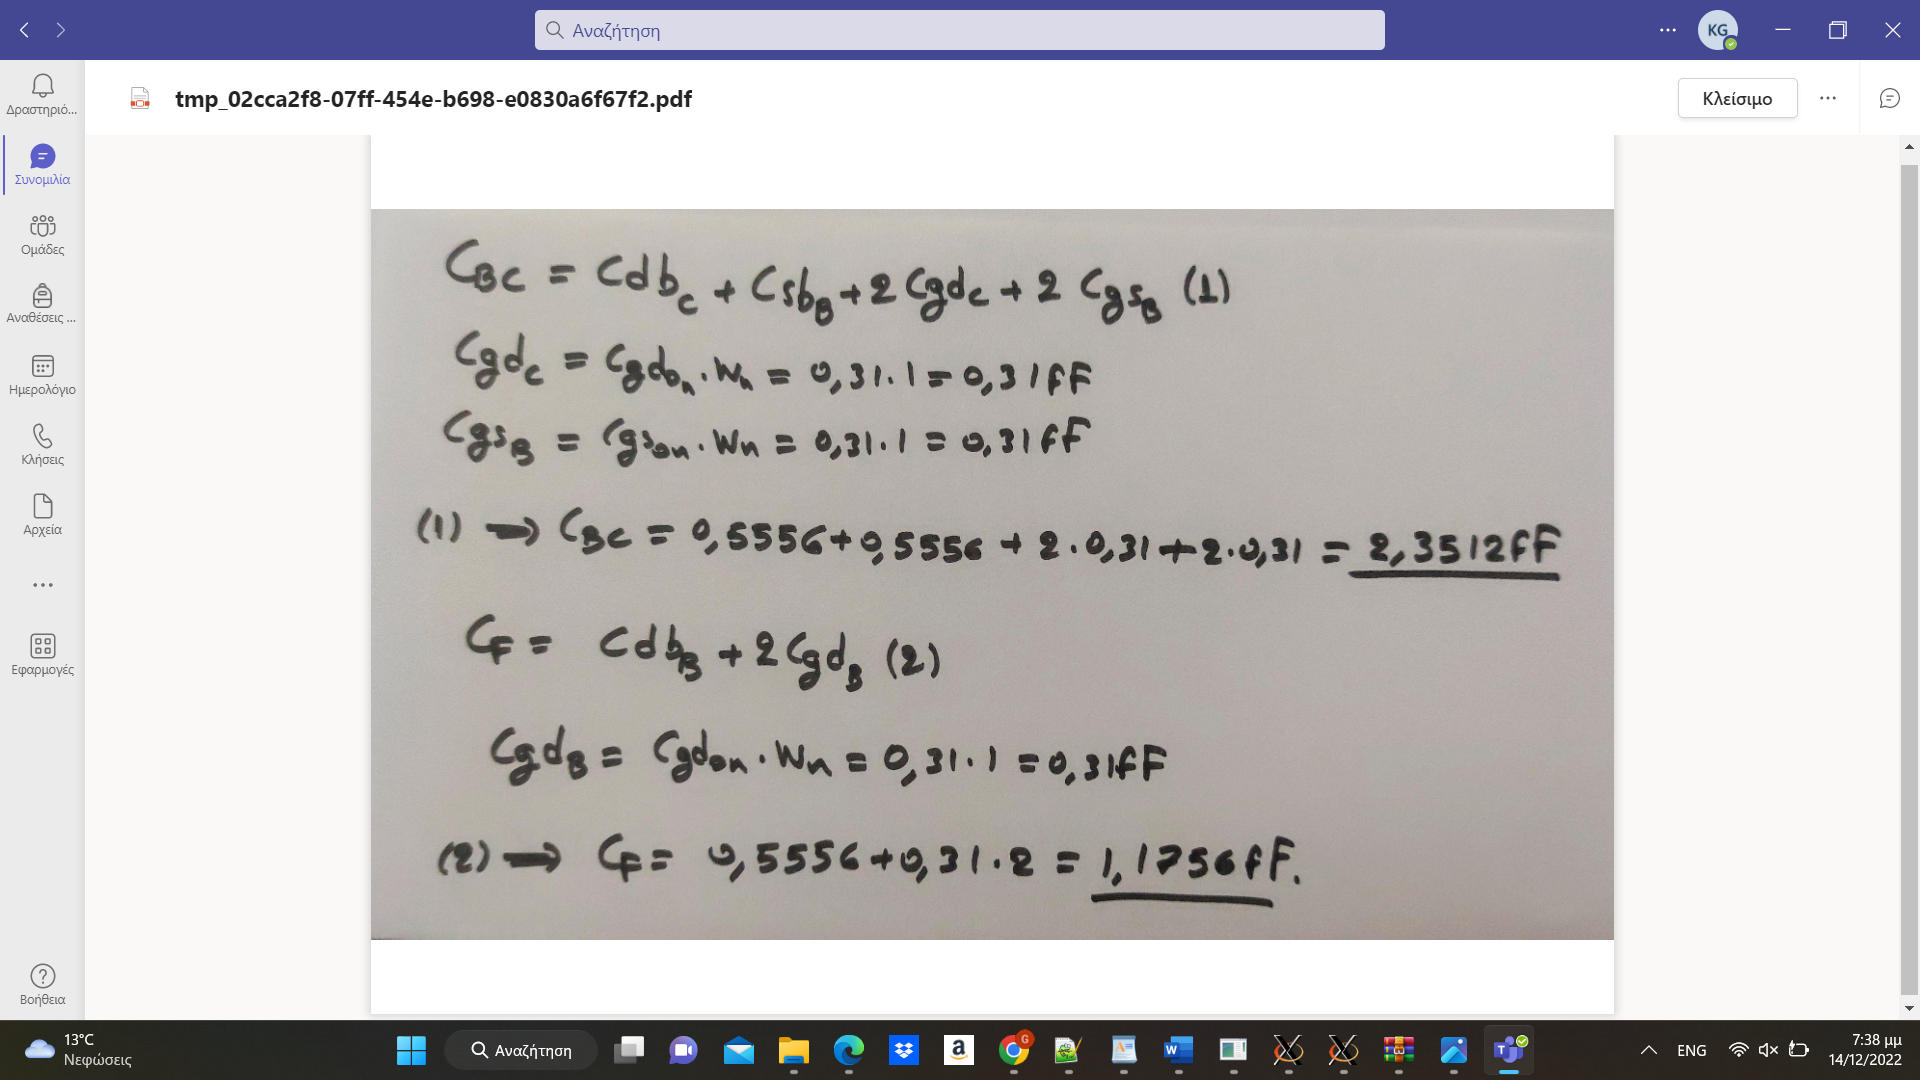 Αναζήτηση
KG
Δραστηριό...
Συνομιλία
Ομάδες
Αναθέσεις ...
Ημερολόγιο
Κλήσεις
Αρχεία
Εφαρμογές
Βοήθεια
tmp_02cca2f8-07ff-454e-b698-e0830a6f67f2.pdf
Κλείσιμο
C_BC = Cdb_C + Csb_B + 2 Cgd_C + 2 Cgs_B (1)
Cgd_C = Cgd_on · Wn = 0,31 · 1 = 0,31fF
Cgs_B = Cgs_on · Wn = 0,31 · 1 = 0,31fF
(1) → C_BC = 0,5556 + 0,5556 + 2 · 0,31 + 2 · 0,31 = 2,3512fF
C_F = Cdb_B + 2Cgd_B (2)
Cgd_B = Cgd_on · Wn = 0,31 · 1 = 0,31fF
(2) → C_F = 0,5556 + 0,31 · 2 = 1,1756fF.
13°C
Νεφώσεις
Αναζήτηση
ENG
7:38 μμ
14/12/2022